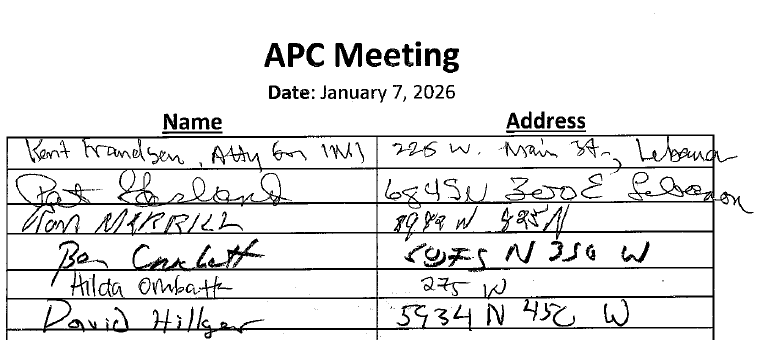 APC Meeting
Date: January 7, 2026
Name Address
Kent Frandsen, Atty for IMI 225 W. Main St., Lebanon
Pat Garland 6845 N 300 E Lebanon
Tom MERRILL N
Ben Crockett 5075 N 350 W
Hilda 275 W
David Hillger 5934 N 450 W